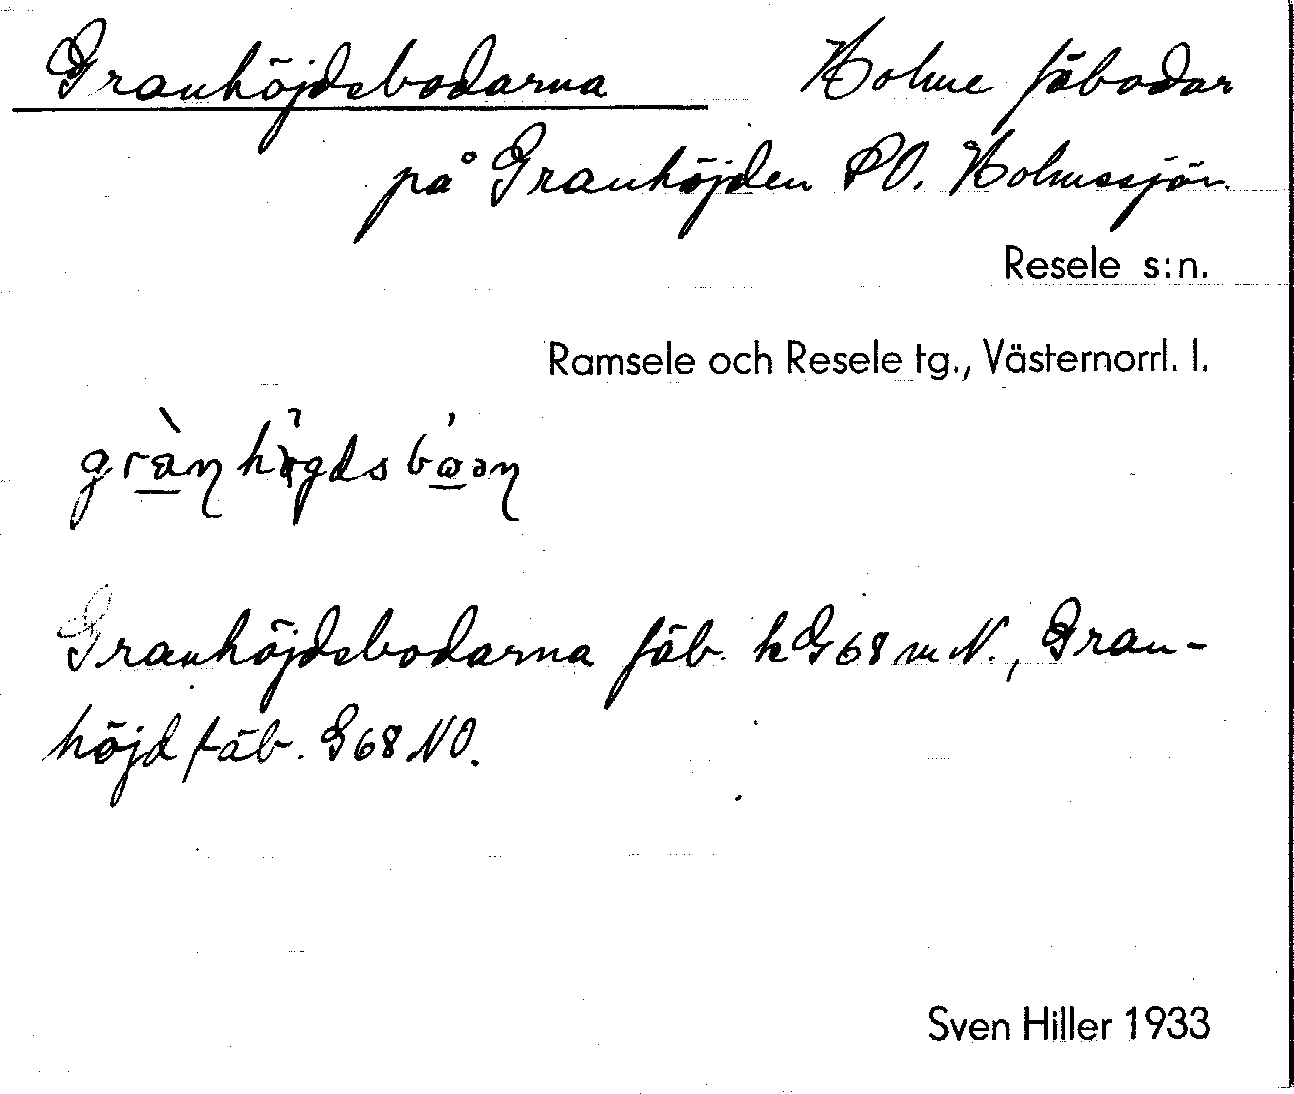 Granhöjdsbodarna Holme fäbodar
på Granhöjden SO. Holmssjön
Resele s:n.
Ramsele och Resele tg., Västernorrl. l.
Granhöjdsbodarna fäb. k G 68 m N., Gran-
höjd fäb. G 68 NO.
Sven Hiller 1933